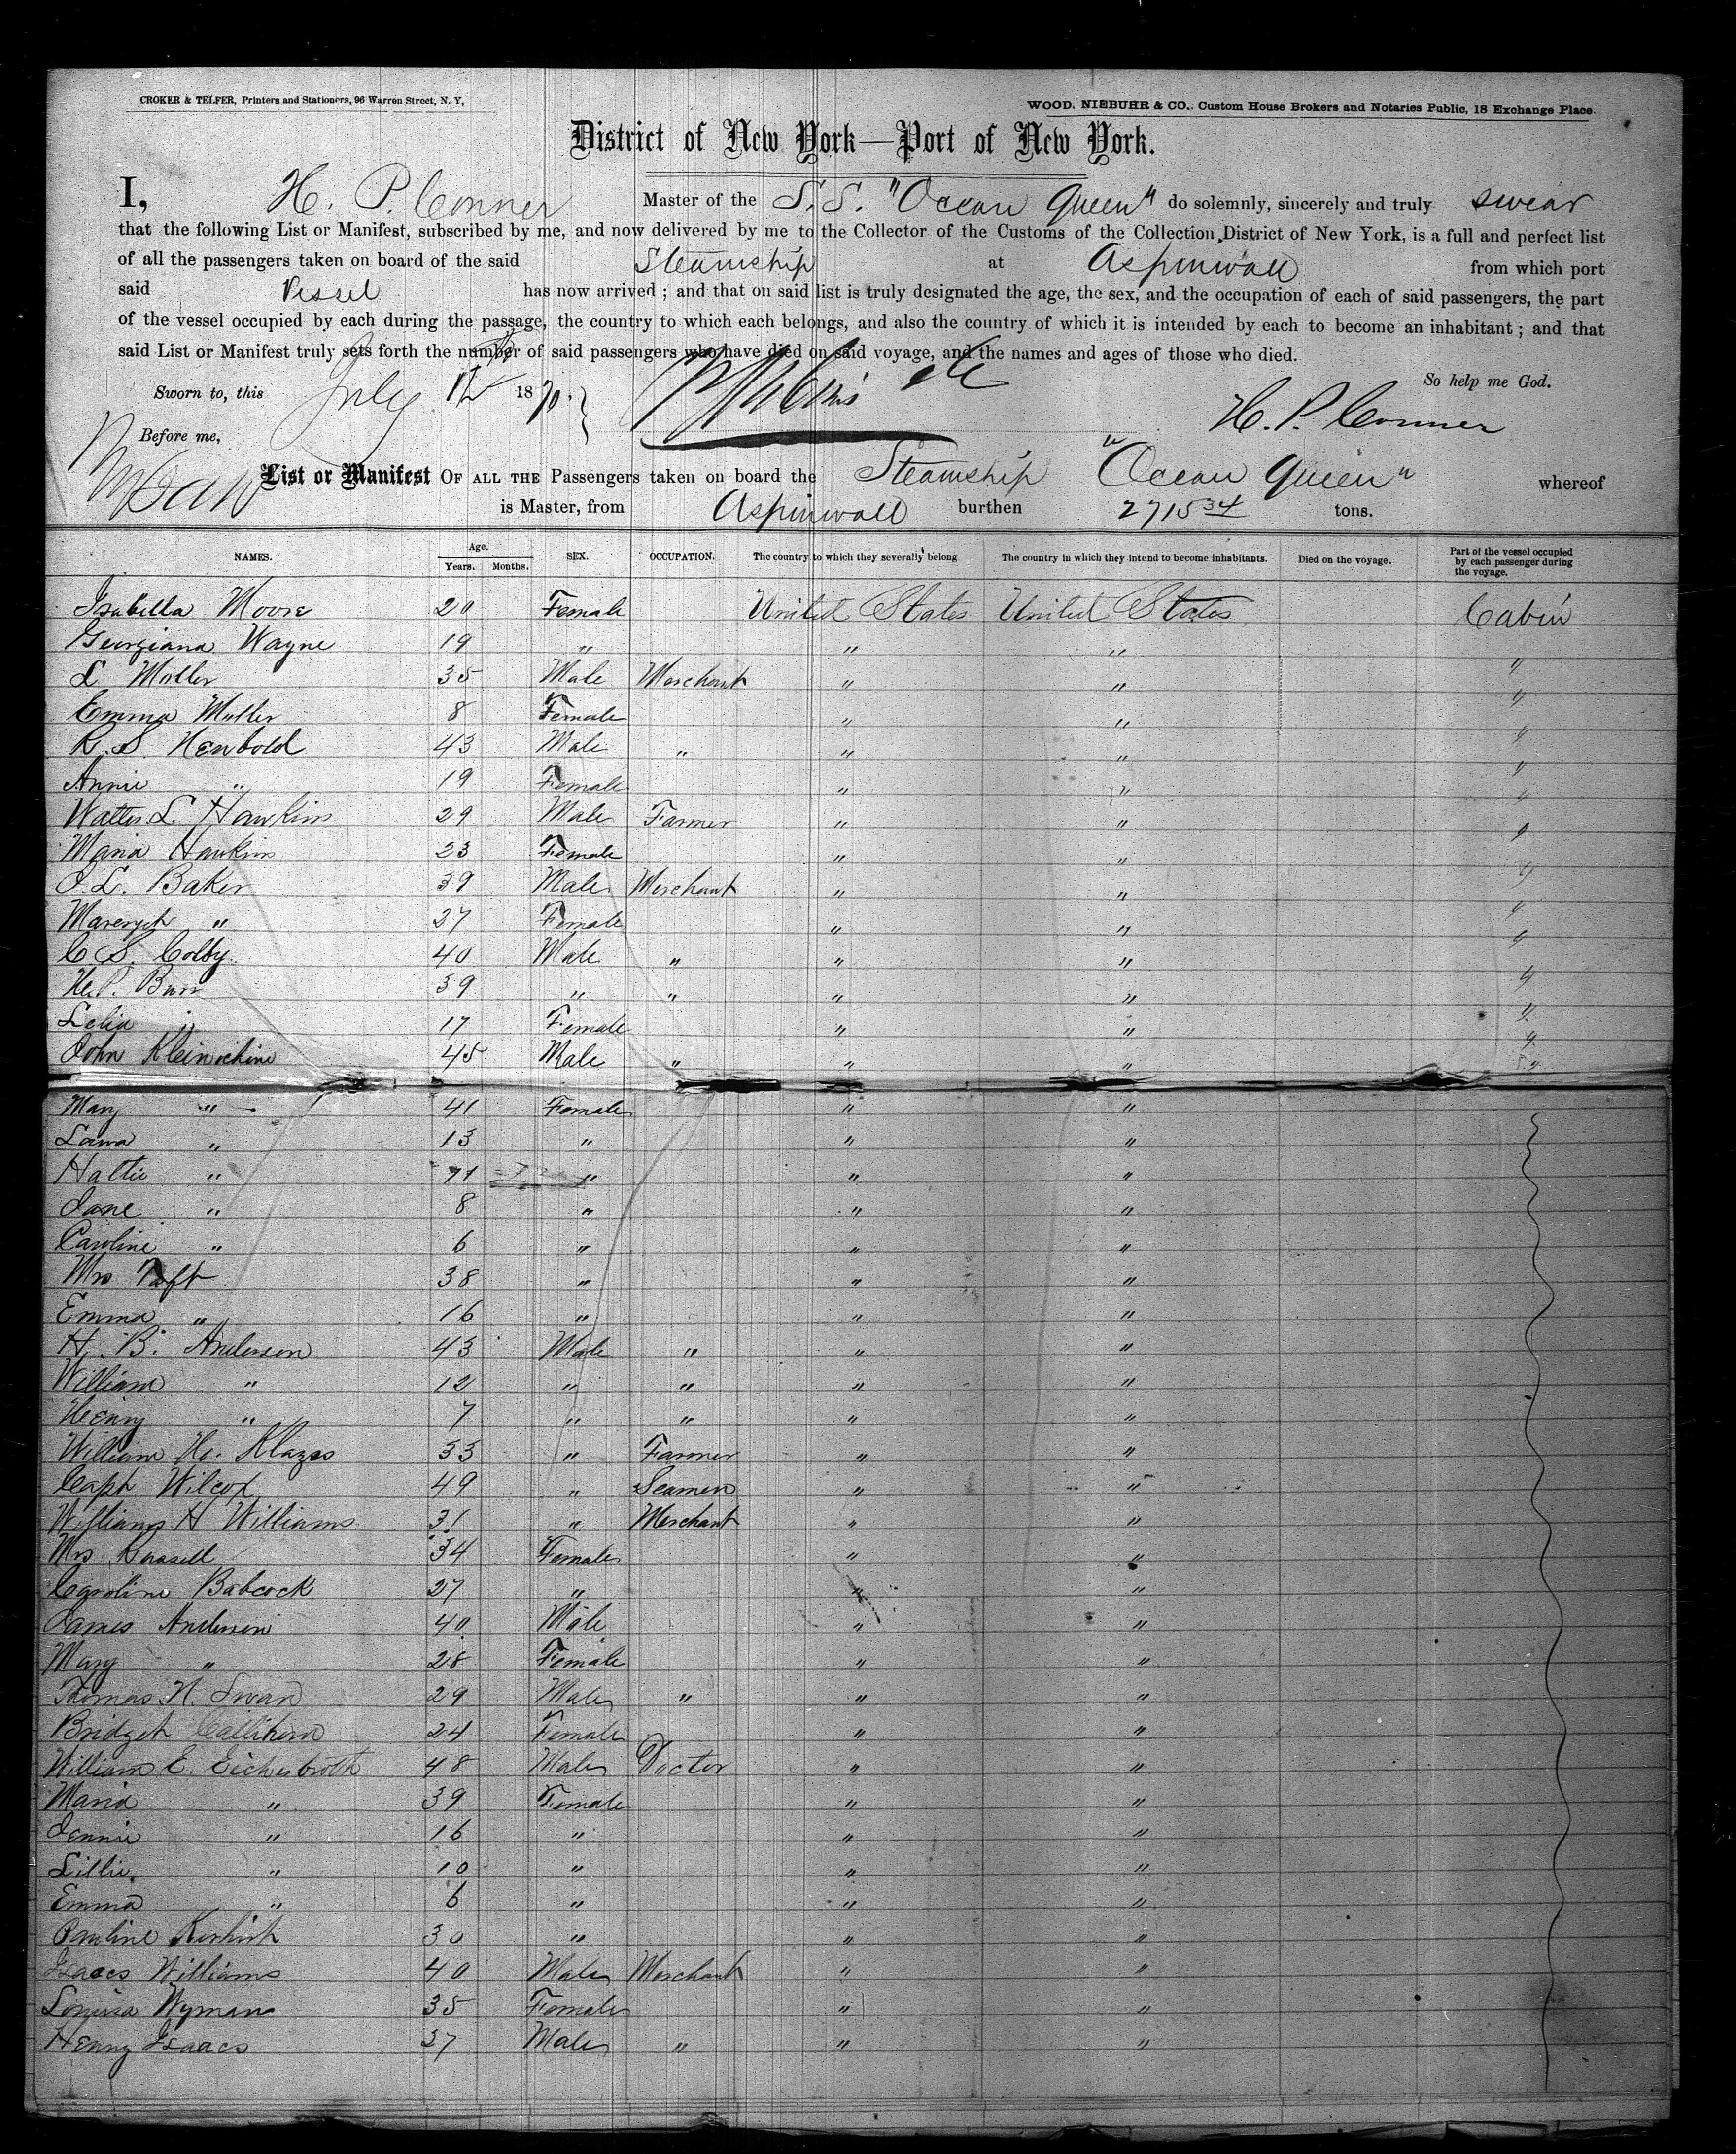 CROKER & TELFER, Printers and Stationers, 96 Warren Street, N. Y,
WOOD, NIEBUHR & CO., Custom House Brokers and Notaries Public, 18 Exchange Place.
District of New York—Port of New York.
I, H. P. Conner Master of the S.S. "Ocean Queen" do solemnly, sincerely and truly swear
that the following List or Manifest, subscribed by me, and now delivered by me to the Collector of the Customs of the Collection District of New York, is a full and perfect list
of all the passengers taken on board of the said Steamship at Aspinwall from which port
said Vessel has now arrived ; and that on said list is truly designated the age, the sex, and the occupation of each of said passengers, the part
of the vessel occupied by each during the passage, the country to which each belongs, and also the country of which it is intended by each to become an inhabitant ; and that
said List or Manifest truly sets forth the number of said passengers who have died on said voyage, and the names and ages of those who died.
So help me God.
Sworn to, this July 12th 1870. H. P. Conner
Before me,
List or Manifest OF ALL THE Passengers taken on board the Steamship "Ocean Queen" whereof
is Master, from Aspinwall burthen 2715 34 tons.
NAMES. Age. Years. Months. SEX. OCCUPATION. The country to which they severally belong The country in which they intend to become inhabitants. Died on the voyage. Part of the vessel occupied by each passenger during the voyage.
Isabella Moore 20 Female United States United States Cabin
Georgiana Wayne 19 " " " "
L Moller 35 Male Merchant " " "
Emma Moller 8 Female " " "
R. S. Newbold 43 Male " " " "
Annie " 19 Female " " "
Walter L. Hawkins 29 Male Farmer " " "
Maria Hawkins 23 Female " " "
L. Baker 39 Male Merchant " " "
" 27 Female " " "
C. S. Colby 40 Male " " " "
H. P. Burr 39 " " " " "
Lelia " 17 Female " " "
John 45 Male " " " "
Mary " 41 Female " "
Laura " 13 " " "
Hattie " 11 " " "
Jane " 8 " " "
Caroline " 6 " " "
Mrs Taft 38 " " "
Emma " 16 " " "
H. B. Anderson 43 Male " " "
William " 12 " " " "
Henry " 7 " " " "
William H. 33 " Farmer " "
Capt Wilcox 49 " Seamen " "
Williams H Williams 31 " Merchant " "
Mrs 34 Female " "
Caroline Babcock 27 " " "
James Anderson 40 Male " "
Mary " 28 Female " "
Thomas N. Swan 29 Male " " "
Bridget 24 Female " "
William E. 48 Male Doctor " "
Maria " 39 Female " "
Jennie " 16 " " "
Lillie " 10 " " "
Emma " 6 " " "
Pauline 30 " " "
Isaacs Williams 40 Male Merchant " "
Louisa Wyman 35 Female " "
Henry Isaacs 37 Male " " "